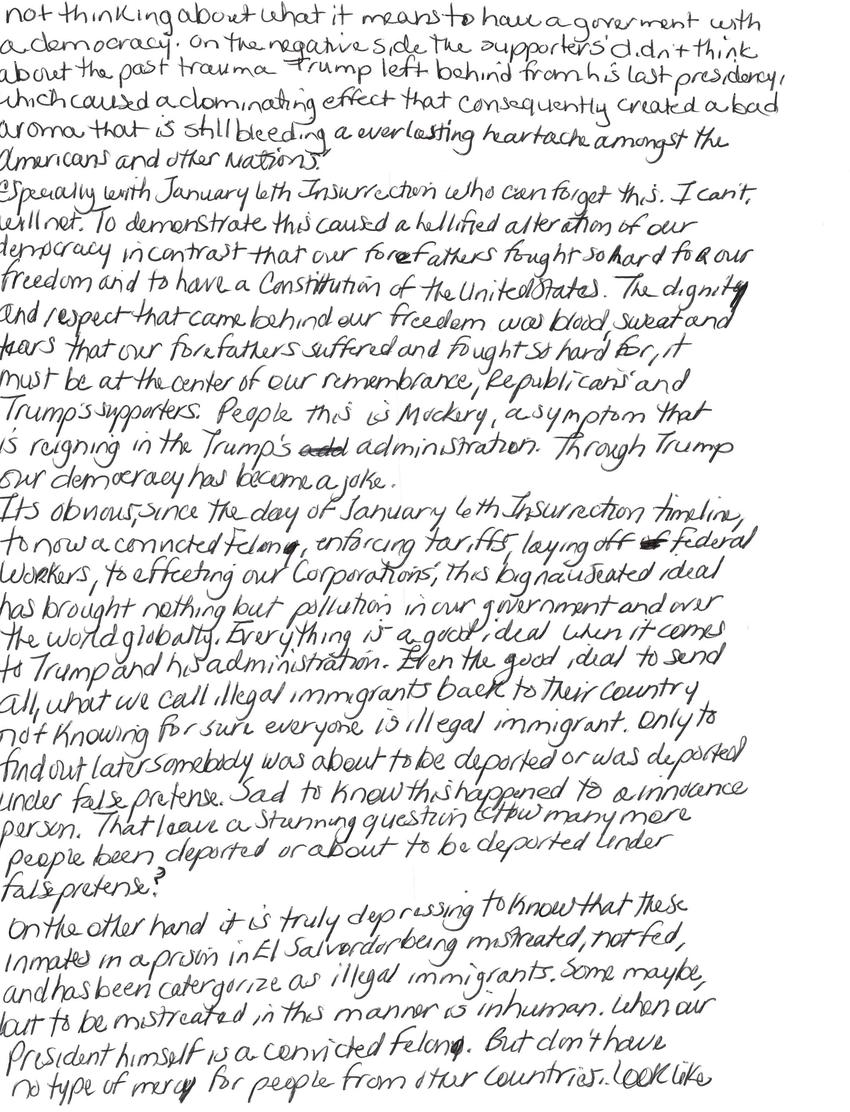 not thinking about what it means to have a goverment with
a democracy. On the negative side the supporters' didn't think
about the past trauma Trump left behind from his last presidency,
which caused a dominating effect that consequently created a bad
aroma that is still bleeding a everlasting heartache amongst the
Americans and other Nations.
Especially with January 6th Insurrection who can forget this. I can't,
will not. To demonstrate this caused a hellified alteration of our
democracy in contrast that our forefathers fought so hard for our
freedom and to have a Constitution of the United States. The dignity
and respect that came behind our freedom was blood, sweat and
tears that our forefathers suffered and fought so hard for, it
must be at the center of our remembrance, Republicans' and
Trump's supporters. People this is Mockery, a symptom that
is reigning in the Trump's add administration. Through Trump
our democracy has become a joke.
Its obvious, since the day of January 6th Insurrection timeline,
to now a convicted Felon, enforcing tariffs, laying off of federal
workers, to effecting our Corporations', this big nauseated ideal
has brought nothing but pollution in our government and over
the world globally. Everything is a good ideal when it comes
to Trump and his administration. Even the good ideal to send
all, what we call illegal immigrants back to their country
not knowing for sure everyone is illegal immigrant. Only to
find out later somebody was about to be deported or was deported
under false pretense. Sad to know this happened to a innocence
person. That leave a stunning question "How many more
people been deported or about to be deported under
false pretense?
On the other hand it is truly depressing to know that these
inmates in a prison in El Salvordor being mistreated, not fed,
and has been catergorize as illegal immigrants. Some maybe,
but to be mistreated in this manner is inhuman. When our
President himself is a convicted felon. But don't have
no type of mercy for people from other countries. Look like